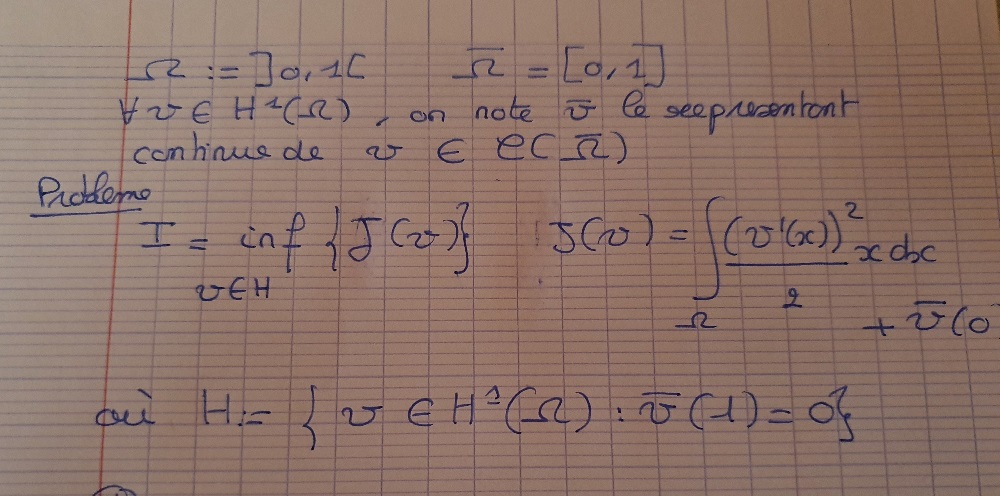 Ω := ]0,1[    Ω̅ = [0,1]
∀ v ∈ H¹(Ω), on note v̅ le representant
continue de v ∈ C(Ω̅)
Probleme
I = inf {J(v)}    J(v) = ∫ (v'(x))² x dx
v∈H    Ω    2    + v̅(0
où H := { v ∈ H¹(Ω) : v̅(1) = 0}